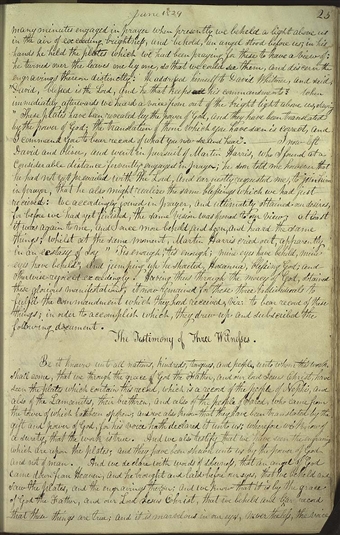 June 1829
25
many minutes engaged in prayer when presently we beheld a light above us
in the air of exceeding brightness, and behold, an angel stood before us; in his
hands he held the plates which we had been praying for these to have a view of:
he turned over the leaves one by one, so that we could see them, and discern the
engravings thereon distinctly: He addressed himself to David Whitmer, and said,
David, blessed is the Lord, and he that keeps his commandments: when
immediately afterwards we heard a voice from out of the bright light above us, saying
These plates have been revealed by the power of God, and they have been translated
by the power of God; the translation of them which you have seen is correct, and
I command you to bear record of what you now see and hear. I now left
David and Oliver, and went in pursuit of Martin Harris, who I found at a
considerable distance fervently engaged in prayer, he soon told me however that
he had not yet prevailed with the Lord, and earnestly requested me, to join him
in prayer, that he also might realize the same blessings which we had just
received: We accordingly joined in prayer, and ultimately obtained our desires,
for before we had yet finished, the same vision was opened to our view; at least
it was again to me, and I once more beheld and heard the same
things; whilst at the same moment, Martin Harris cried out, apparently
in an ecstasy of joy 'Tis enough, 'tis enough; mine eyes have beheld, mine
eyes have beheld; and jumping up he shouted, Hosanna, blessing God; and
otherwise rejoiced exceedingly. Having thus through the mercy of God, obtained
these glorious manifestations, it now remained for these three individuals to
fulfil the commandment which they had received, viz: to bear record of these
things; in order to accomplish which, they drew up and subscribed the
following document.
The Testimony of Three Witnesses.
Be it known unto all nations, kindreds, tongues, and people, unto whom this work
shall come, that we through the grace of God the Father, and our Lord Jesus Christ, have
seen the plates which contain this record, which is a record of the people of Nephi, and
also of the Lamanites, their brethren, and also of the people of Jared, who came from
the tower of which hath been spoken; and we also know that they have been translated by the
gift and power of God, for his voice hath declared it unto us; wherefore we know of
a surety, that the work is true. And we also testify that we have seen the engravings
which are upon the plates; and they have been shewn unto us by the power of God,
and not of man. And we declare with words of soberness, that an angel of God
came down from Heaven, and he brought and laid before our eyes, that we beheld and
saw the plates, and the engravings thereon; and we know that it is by the grace
of God the Father, and our Lord Jesus Christ, that we beheld and bear record
that these things are true; and it is marvelous in our eyes, nevertheless, the voice